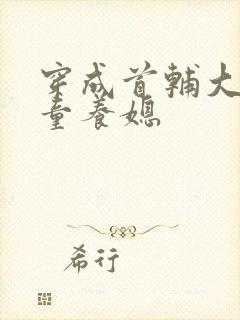 穿成首辅大
童养媳
希行